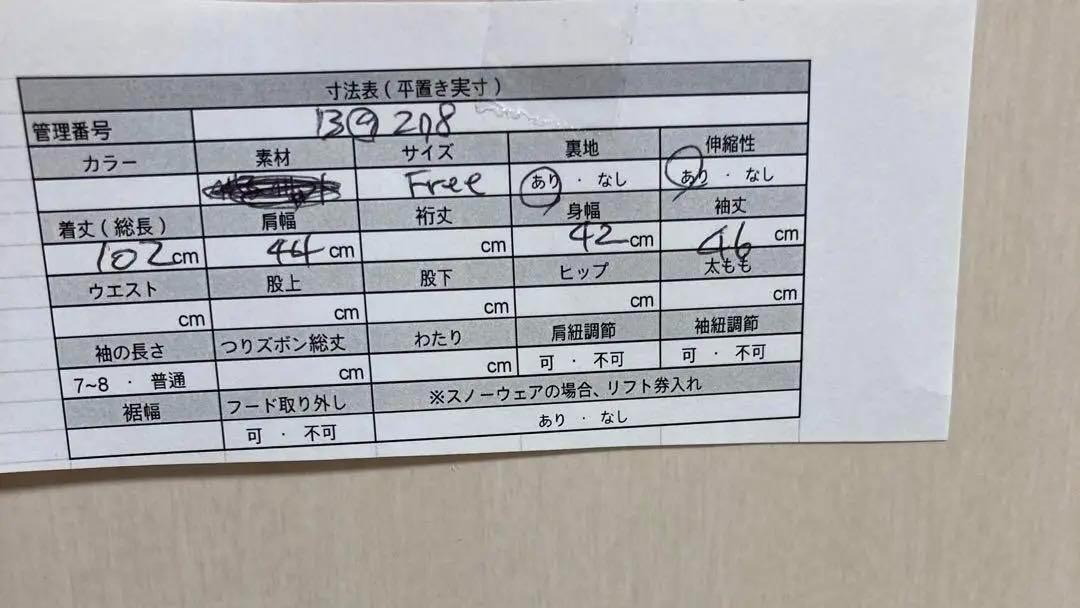 寸法表(平置き実寸)
管理番号 13⑨ 208
カラー 素材 サイズ 裏地 伸縮性
Free あり · なし あり · なし
着丈(総長) 肩幅 裄丈 身幅 袖丈
102cm 44cm cm 42cm 46cm
ウエスト 股上 股下 ヒップ 太もも
cm cm cm cm cm
袖の長さ つりズボン総丈 わたり 肩紐調節 袖紐調節
7~8 · 普通 cm cm 可 · 不可 可 · 不可
裾幅 フード取り外し ※スノーウェアの場合、リフト券入れ
可 · 不可 あり · なし